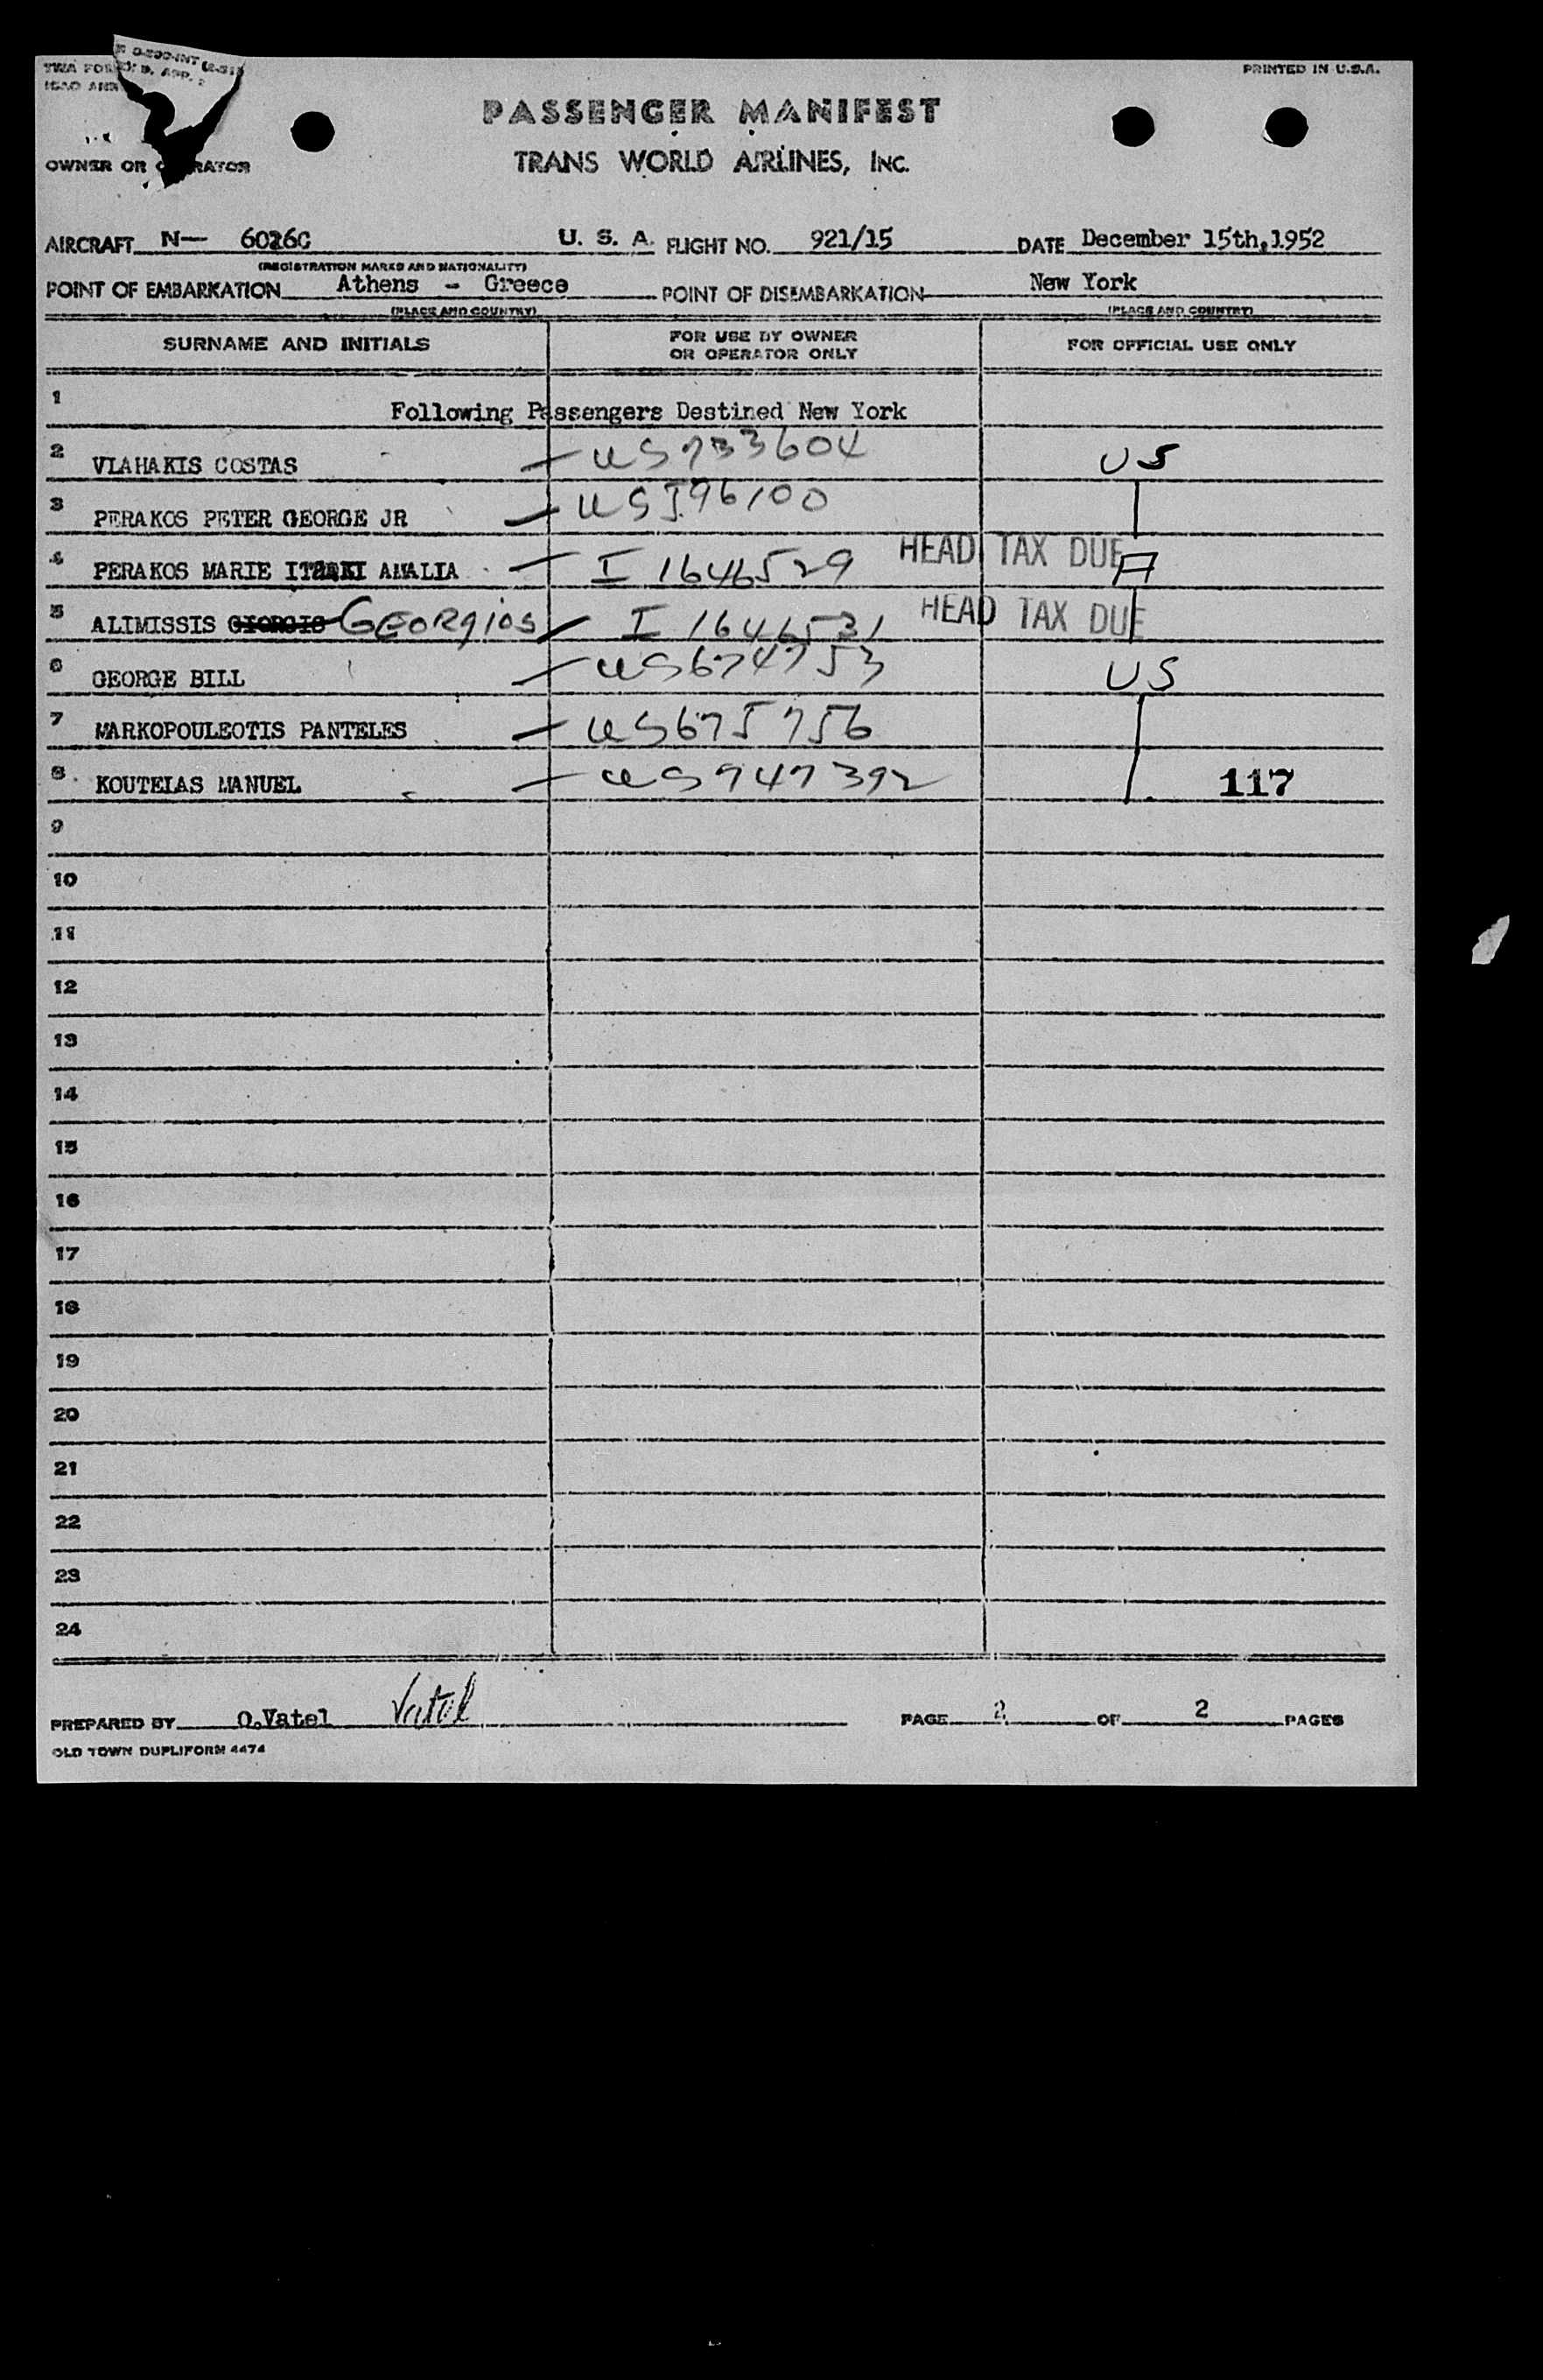 PRINTED IN U.S.A.
PASSENGER MANIFEST
TRANS WORLD AIRLINES, INC.
OWNER OR OPERATOR
AIRCRAFT N— 6026C U. S. A. FLIGHT NO. 921/15 DATE December 15th,1952
(REGISTRATION MARKS AND NATIONALITY)
POINT OF EMBARKATION Athens - Greece POINT OF DISEMBARKATION New York
(PLACE AND COUNTRY) (PLACE AND COUNTRY)
SURNAME AND INITIALS FOR USE BY OWNER OR OPERATOR ONLY FOR OFFICIAL USE ONLY
1 Following Passengers Destined New York
2 VLAHAKIS COSTAS — US 733604 US
3 PERAKOS PETER GEORGE JR — US 596100
4 PERAKOS MARIE AMALIA — I 1646529 HEAD TAX DUE A
5 ALIMISSIS GIORGIS GEORgios — I 1646531 HEAD TAX DUE
6 GEORGE BILL — US 674753 US
7 MARKOPOULEOTIS PANTELES — US 675756
8 KOUTELAS MANUEL — US 947392 117
9
10
11
12
13
14
15
16
17
18
19
20
21
22
23
24
PREPARED BY O.Vatel Vatel PAGE 2 OF 2 PAGES
OLD TOWN DUPLIFORM 4474